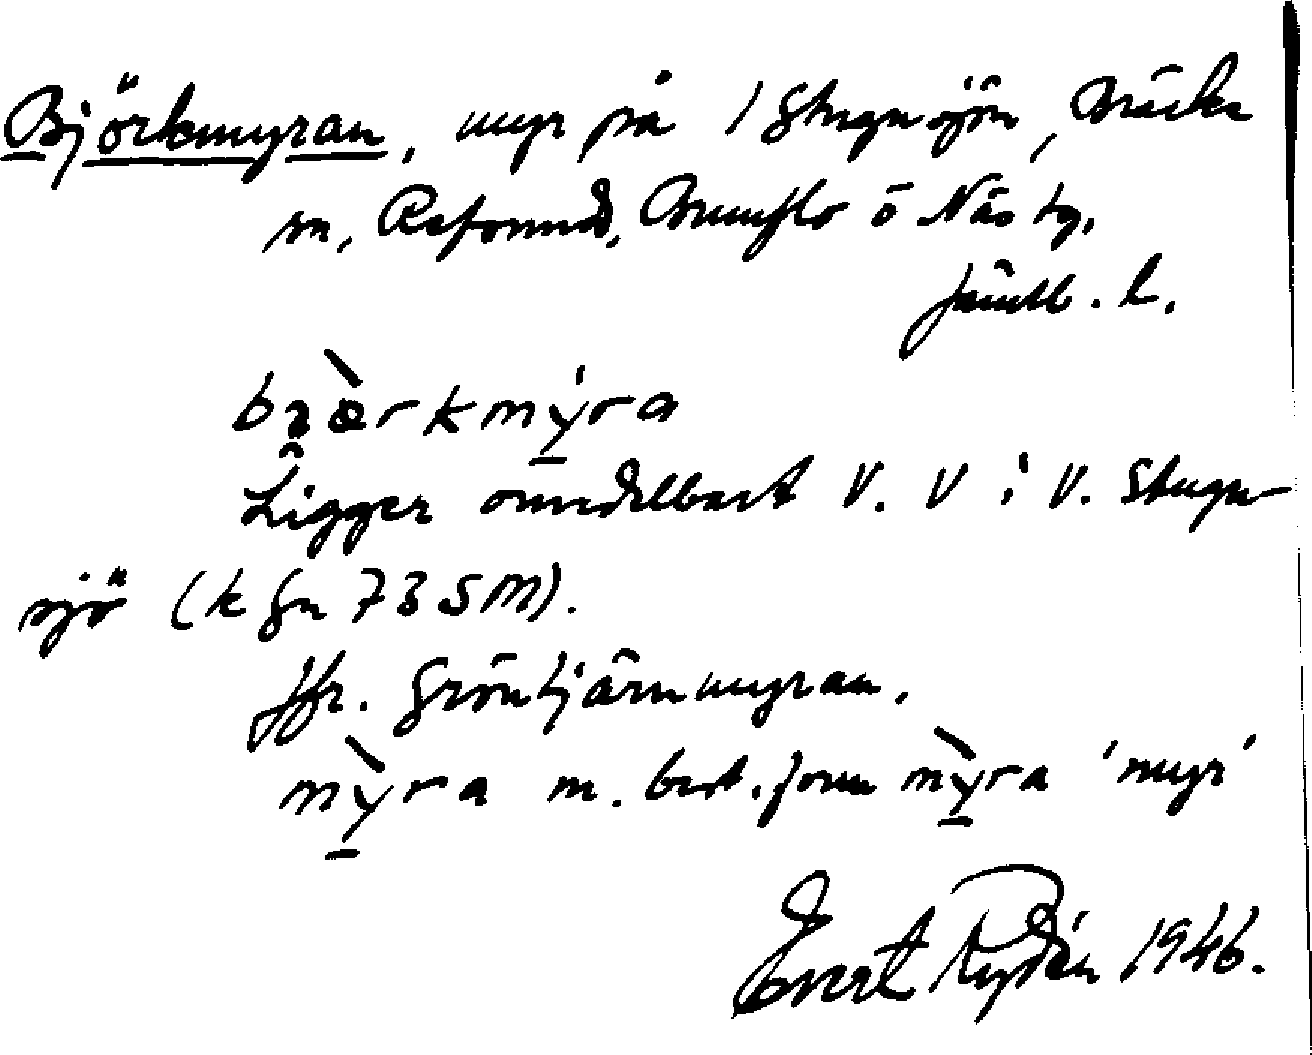 Björkmyran, myr på 1 Stugusjön, Bräcke
sn, Refsunds, Brunflo o Näs tg,
Jämtl. l.
bɿæ̀rkmý̱ra
Ligger omedelbart V. V i V. Stugu-
sjö (k gn 73 SM).
Jfr. Gröntjärnmyran.
mỳ̱ra m. best. form mỳ̱ra 'myr'
Evert Rydén 1946.